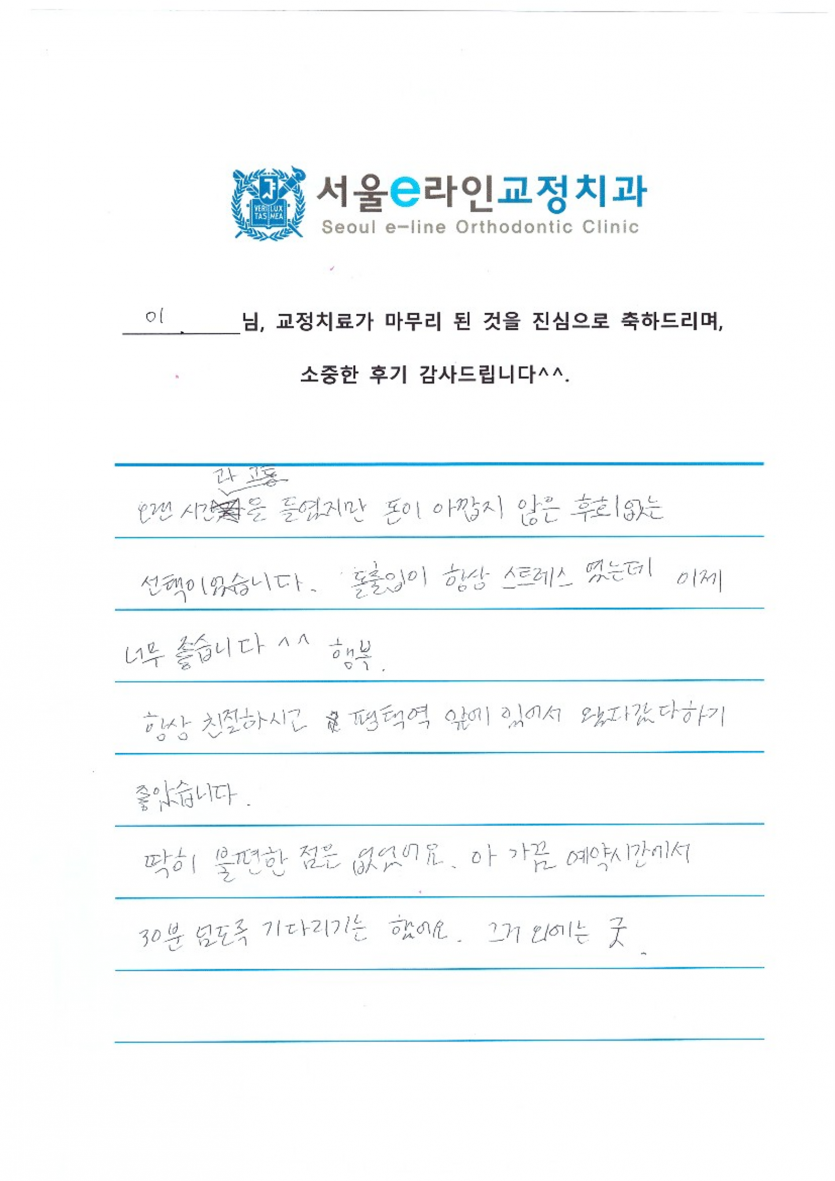 서울e라인교정치과
Seoul e-line Orthodontic Clinic
VERI LUX
TAS MEA
이 님, 교정치료가 마무리 된 것을 진심으로 축하드리며,
소중한 후기 감사드립니다^^.
과 고통
오랜 시간을 들였지만 돈이 아깝지 않은 후회없는
선택이었습니다. 돌출입이 항상 스트레스 였는데 이제
너무 좋습니다 ^^ 행복.
항상 친절하시고 평택역 앞에 있어서 왔다갔다하기
좋았습니다.
딱히 불편한 점은 없었어요. 아 가끔 예약시간에서
30분 넘도록 기다리기는 했어요. 그거 외에는 굿.